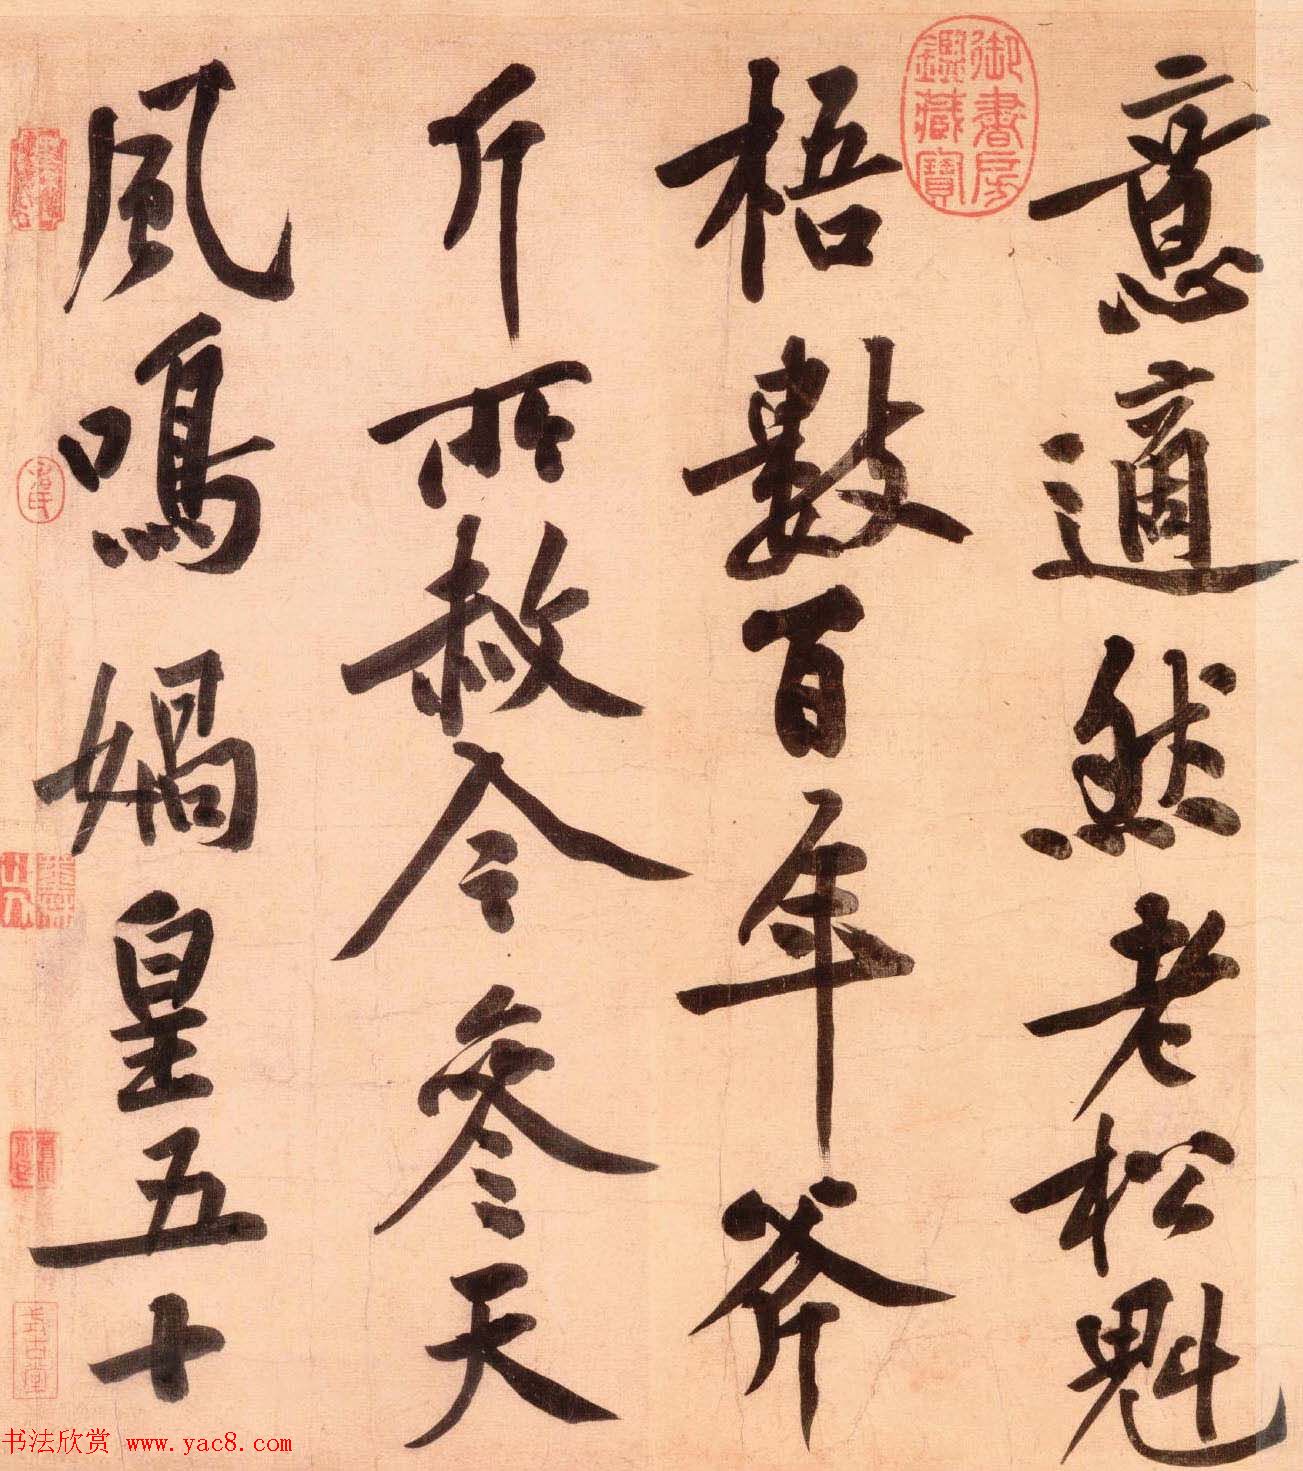 意適然老松魁
梧數百年斧
斤所赦令參天
風鳴媧皇五十
御書房
鑑藏寶
書法欣赏 www.yac8.com